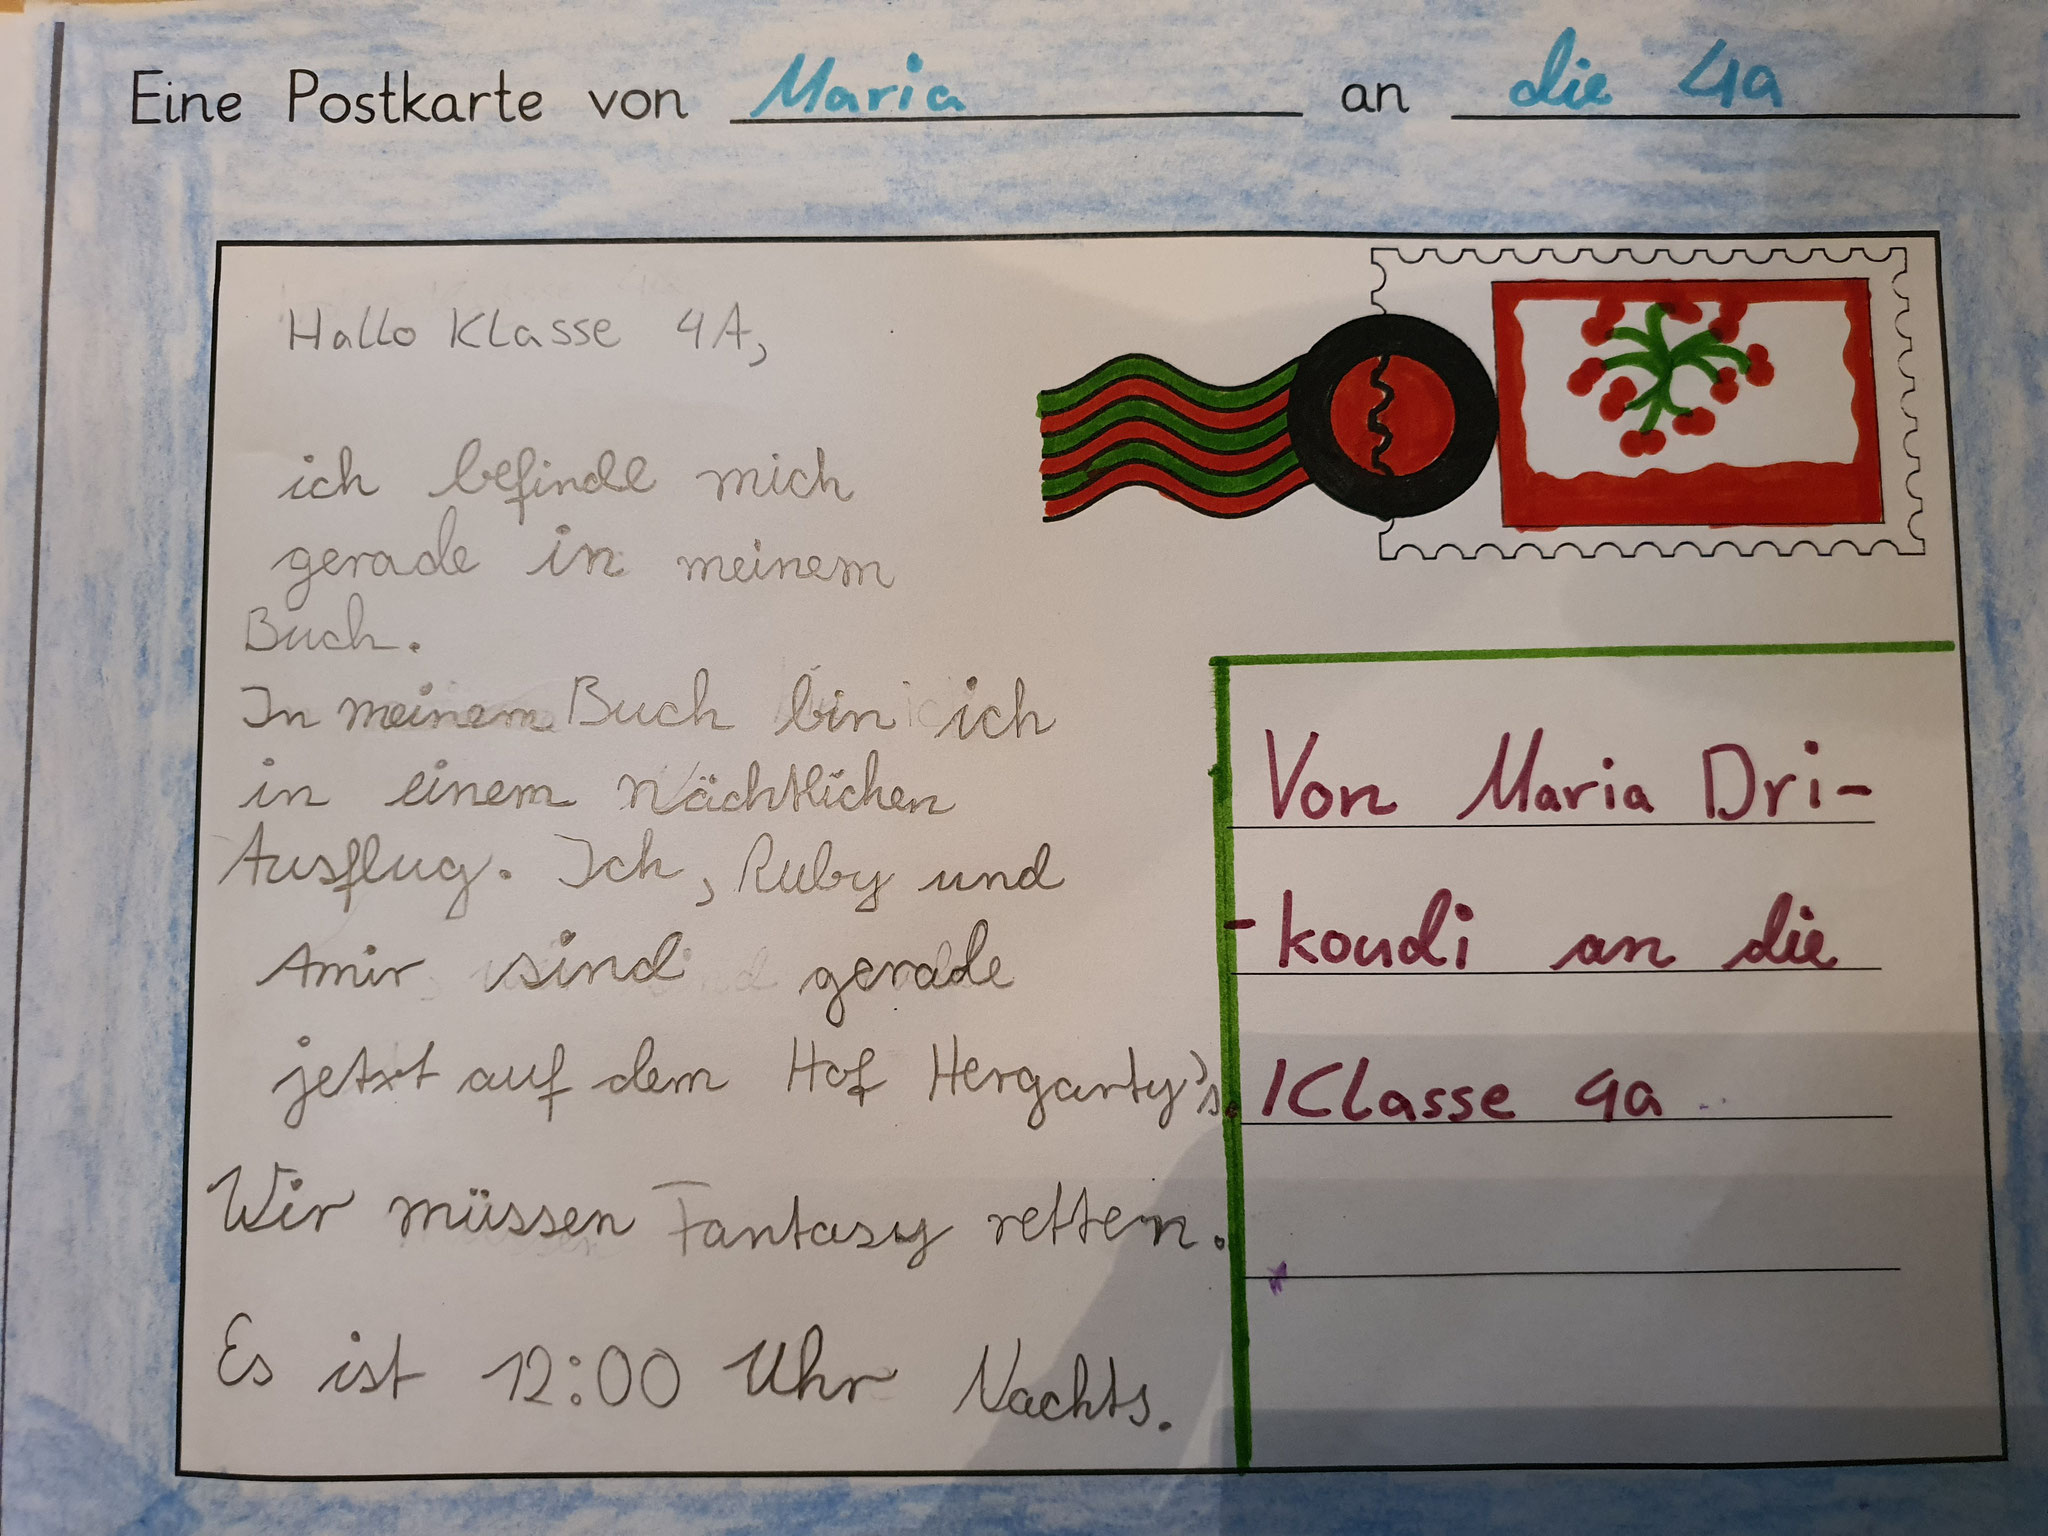 Eine Postkarte von Maria an die 4a
Hallo Klasse 4A,
ich befinde mich
gerade in meinem
Buch.
In meinem Buch bin ich
in einem nächtlichen
Ausflug. Ich, Ruby und
Amir sind gerade
jetzt auf dem Hof Hergarty's.
Wir müssen Fantasy retten.
Es ist 12:00 Uhr Nachts.
Von Maria Dri-
-koudi an die
Klasse 4a